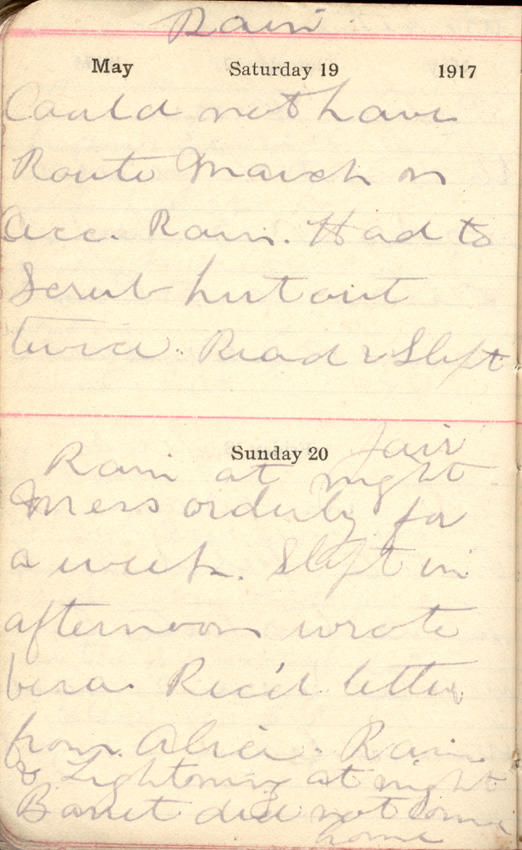 Rain
May Saturday 19 1917
Could not have
Route March on
Acc. Rain. Had to
Scrub hut out
twice. Read & Slept
Sunday 20 fair
Rain at night
Mess orderly for
a week. Slept in
afternoon wrote
Vera. Rec'd letter
from Alice. Rain
& Lightning at night
Barret did not come
home